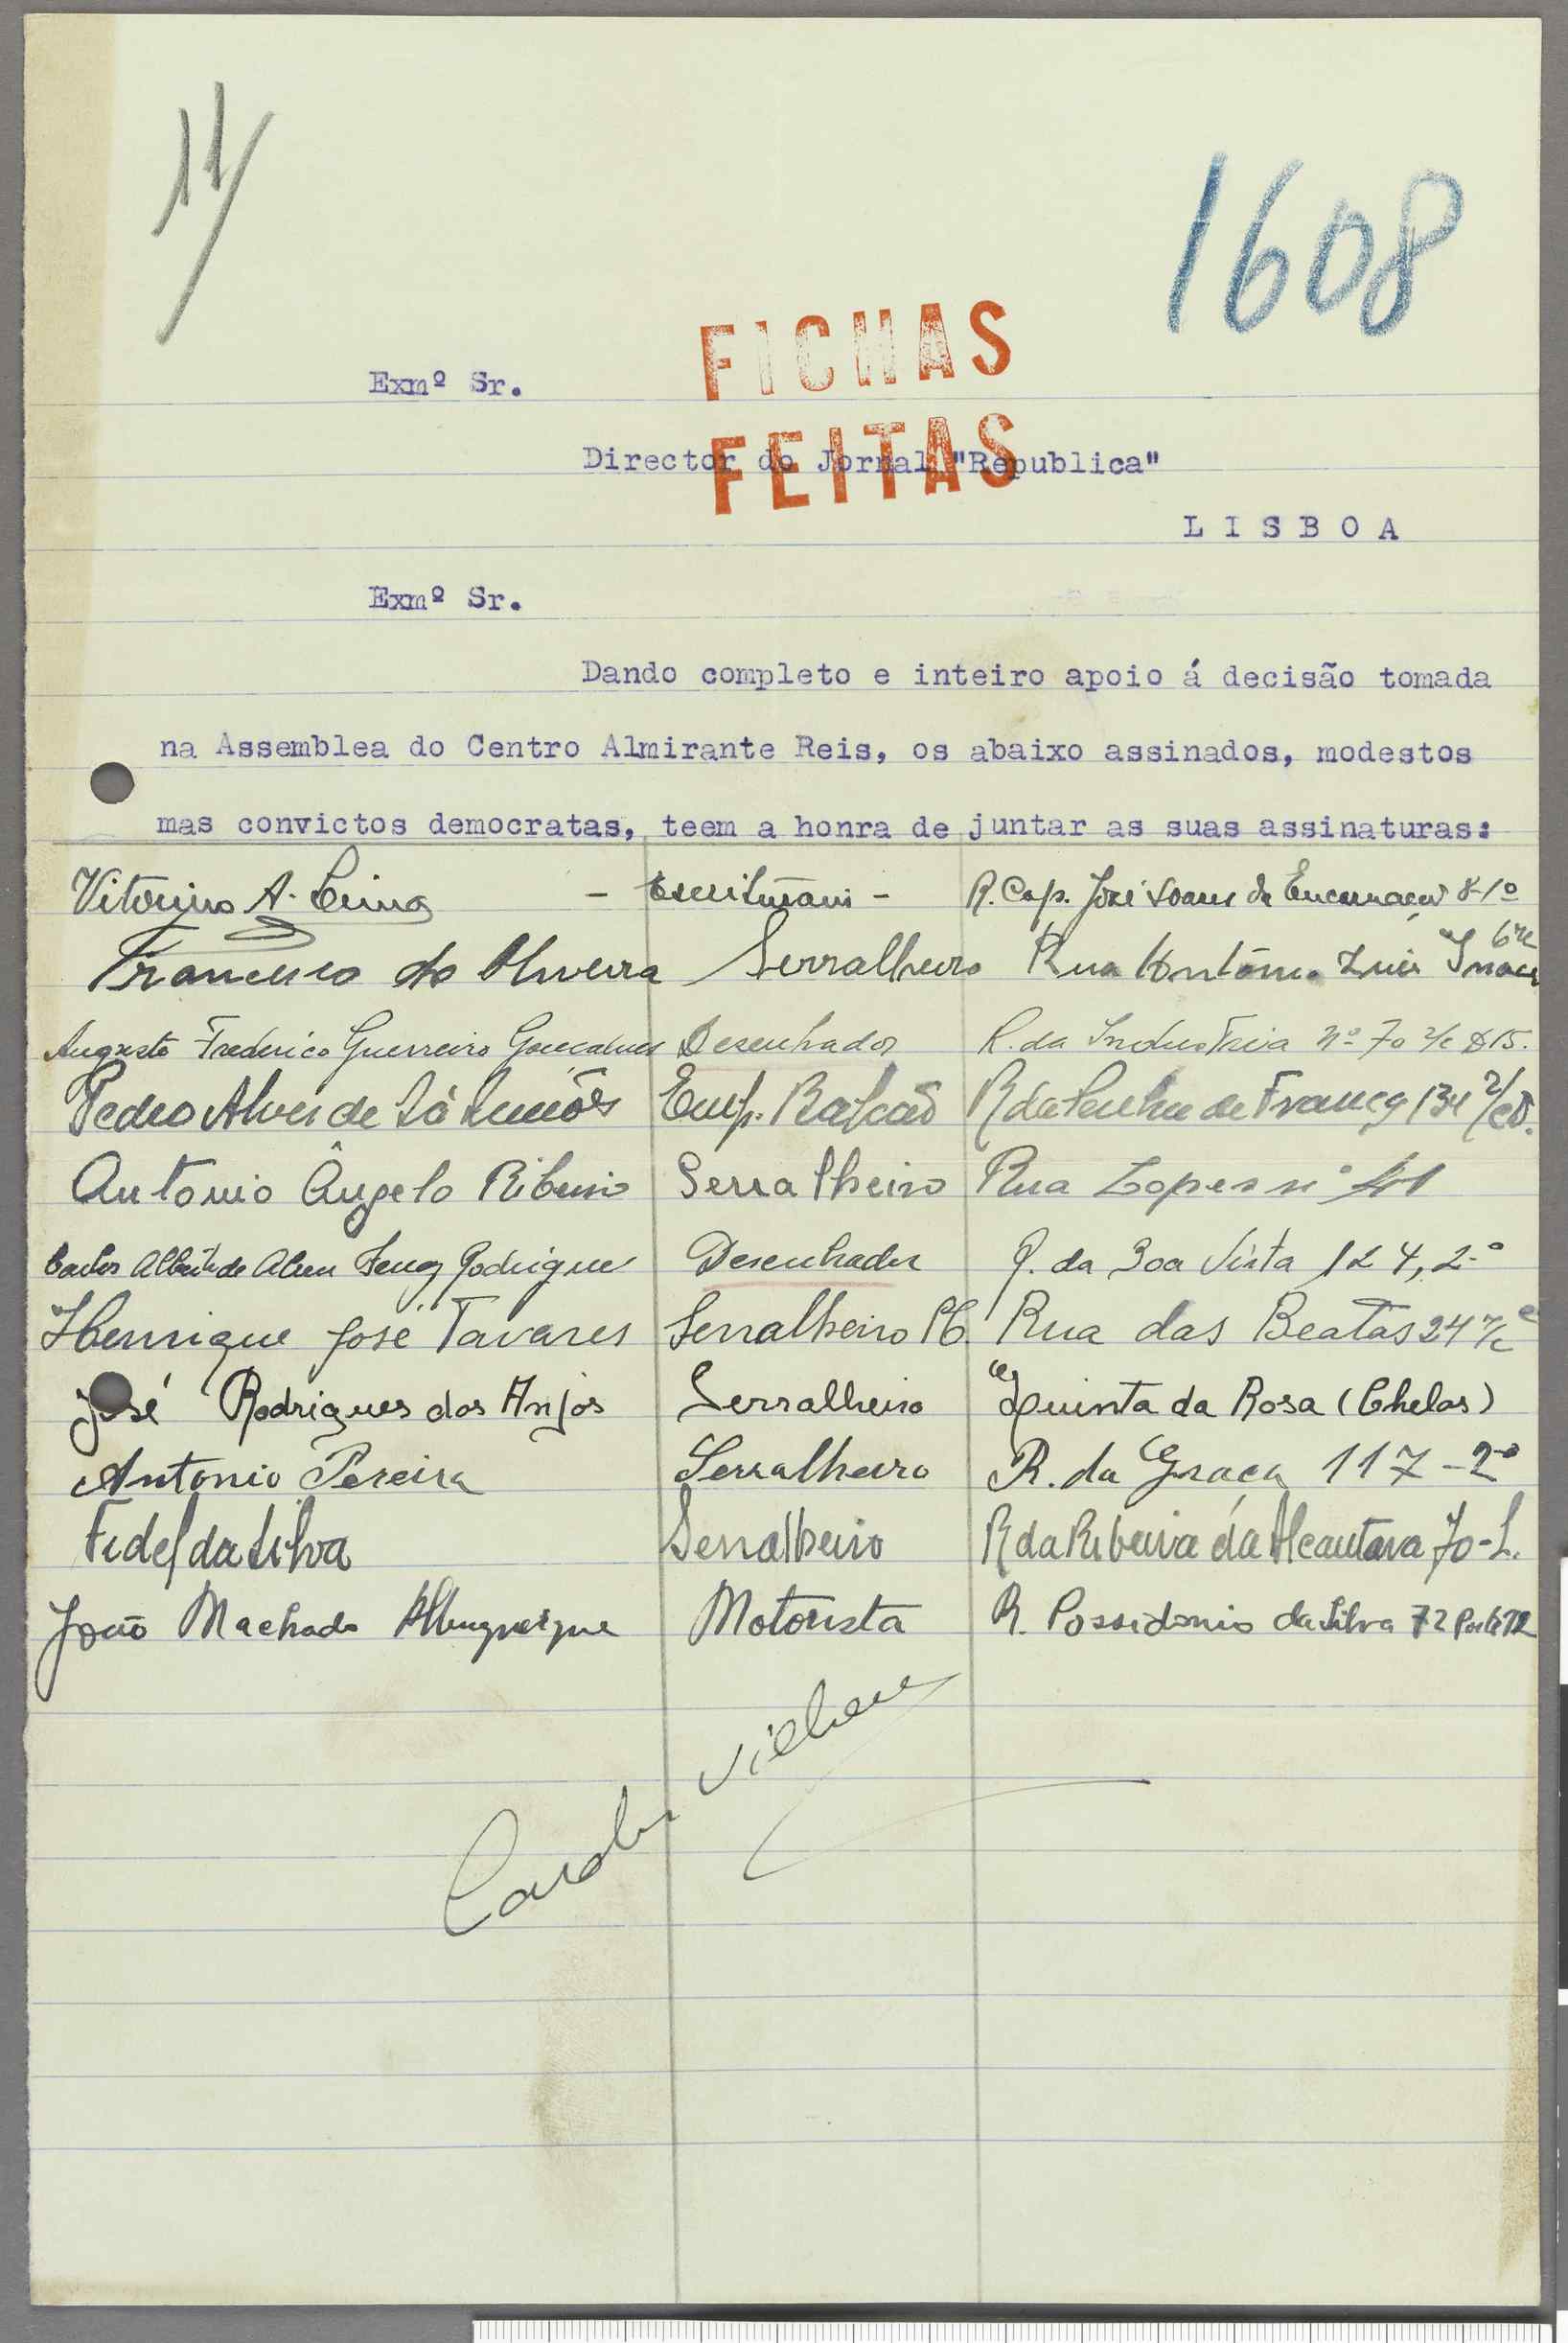 11
1608
FICHAS
FEITAS
Exmº Sr.
Director do Jornal "Republica"
L I S B O A
Exmº Sr.
Dando completo e inteiro apoio á decisão tomada
na Assemblea do Centro Almirante Reis, os abaixo assinados, modestos
mas convictos democratas, teem a honra de juntar as suas assinaturas:
Vitorino A. - - R. Cap. José Soares da Encarnação 8-1º
Francisco de Oliveira Serralheiro Rua António Luís Inacio
Augusto Frederico Guerreiro Gonçalves Desenhador R. da Industria nº 70 r/c
Pedro Alves de Sá Emp. Balcão R da Penha de França 134 r/c D.
Antonio Ângelo Ribeiro Serralheiro Rua Lopes nº
Carlos de Rodrigues Desenhador R. da Boa Vista 124, 2º
Henrique José Tavares Serralheiro Rua das Beatas 24 r/c
José Rodrigues dos Anjos Serralheiro Quinta da Rosa (Chelas)
Antonio Pereira Serralheiro R. da Graça 117-2º
Fidel da Silva Serralheiro R da Ribeira da Alcantara 70-L.
João Machado Albuquerque Motorista R. Possidonio da Silva 72